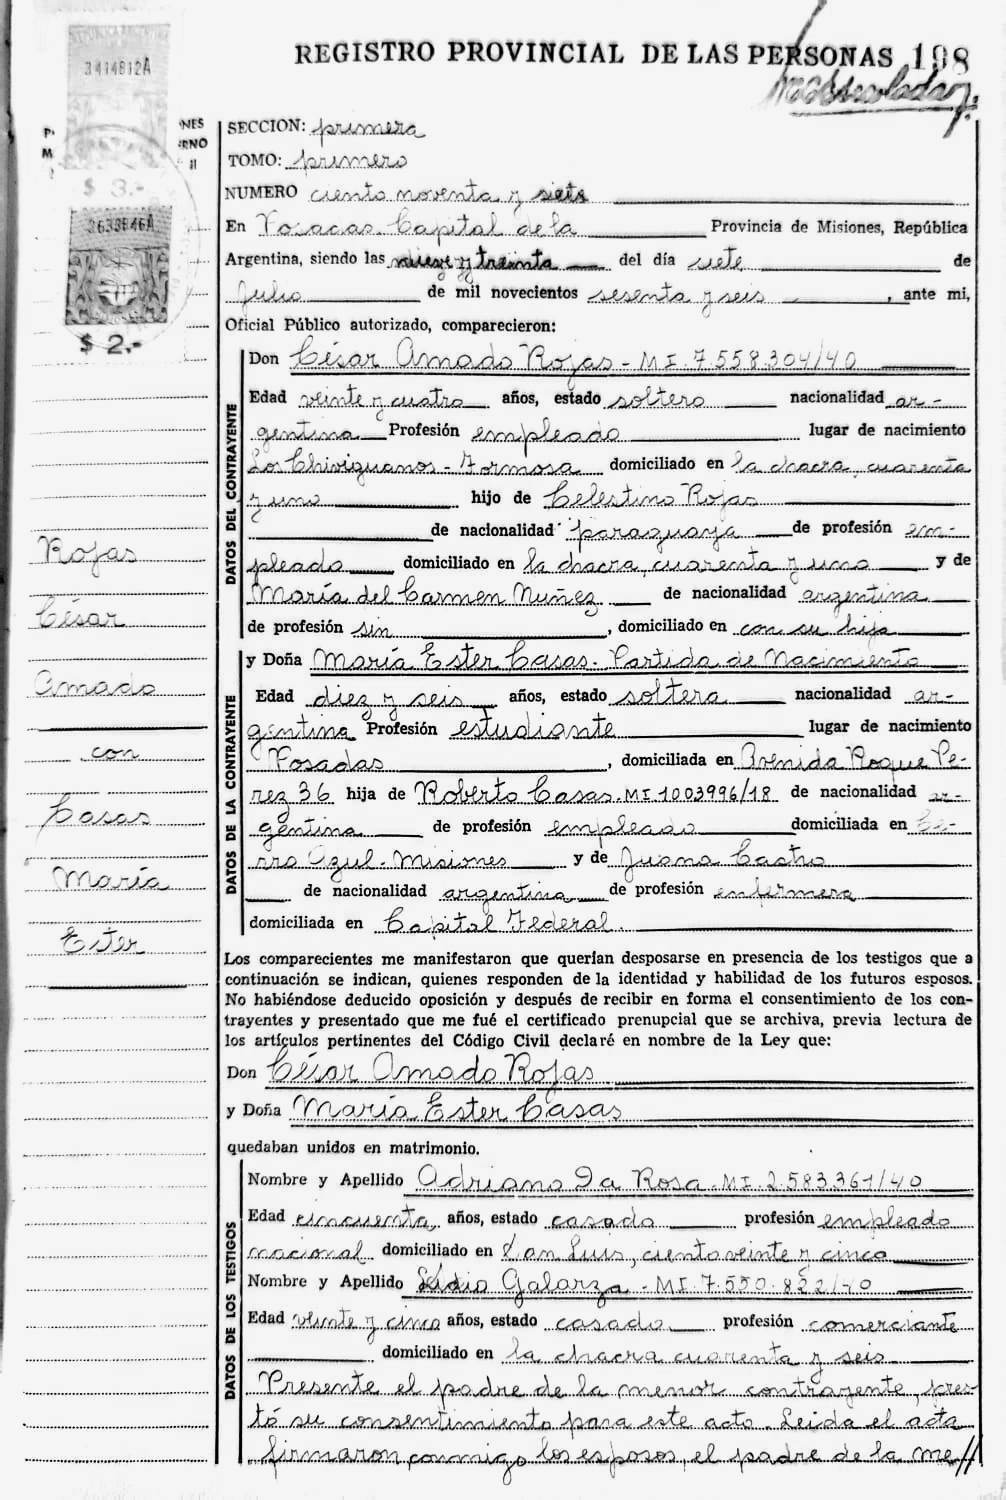 REGISTRO PROVINCIAL DE LAS PERSONAS 198
3414812A
$ 3.-
363384 6A
$ 2,-
SECCION: primera
TOMO: primero
NUMERO ciento noventa y siete
En Posadas. Capital de la Provincia de Misiones, República
Argentina, siendo las nueve y treinta del día siete de
Julio de mil novecientos sesenta y seis, ante mi,
Oficial Público autorizado, comparecieron:
DATOS DEL CONTRAYENTE
Don César Amado Rojas - MI. 7.558.304/40
Edad veinte y cuatro años, estado soltero nacionalidad ar-
gentina Profesión empleado lugar de nacimiento
Los Chiriguanos - Formosa domiciliado en la chacra cuarenta
y uno hijo de Celestino Rojas
de nacionalidad paraguaya de profesión em-
pleado domiciliado en la chacra cuarenta y uno y de
María del Carmen Nuñez de nacionalidad argentina
de profesión sin, domiciliado en con su hijo
DATOS DE LA CONTRAYENTE
y Doña María Ester Casas. Partida de Nacimiento
Edad diez y seis años, estado soltera nacionalidad ar-
gentina Profesión estudiante lugar de nacimiento
Posadas, domiciliada en Avenida Roque Pe-
rez 36 hija de Roberto Casas. MI. 1003996/18 de nacionalidad ar-
gentina de profesión empleado domiciliada en Ce-
rro Azul - Misiones y de Juana Castro
de nacionalidad argentina de profesión enfermera
domiciliada en Capital Federal.
Los comparecientes me manifestaron que querían desposarse en presencia de los testigos que a
continuación se indican, quienes responden de la identidad y habilidad de los futuros esposos.
No habiéndose deducido oposición y después de recibir en forma el consentimiento de los con-
trayentes y presentado que me fué el certificado prenupcial que se archiva, previa lectura de
los artículos pertinentes del Código Civil declaré en nombre de la Ley que:
Don César Amado Rojas
y Doña María Ester Casas
quedaban unidos en matrimonio.
DATOS DE LOS TESTIGOS
Nombre y Apellido Adriano Da Rosa. MI. 2.583.361/40
Edad cincuenta, años, estado casado profesión empleado
nacional domiciliado en San Luis, ciento veinte y cinco
Nombre y Apellido Galarza - MI. 7.550.822/40
Edad veinte y cinco años, estado casado profesión comerciante
domiciliado en la chacra cuarenta y seis
Presente el padre de la menor contrayente, pres-
tó su consentimiento para este acto. Leída el acta
firmaron conmigo los esposos, el padre de la me//
Rojas
César
Amado
con
Casas
María
Ester